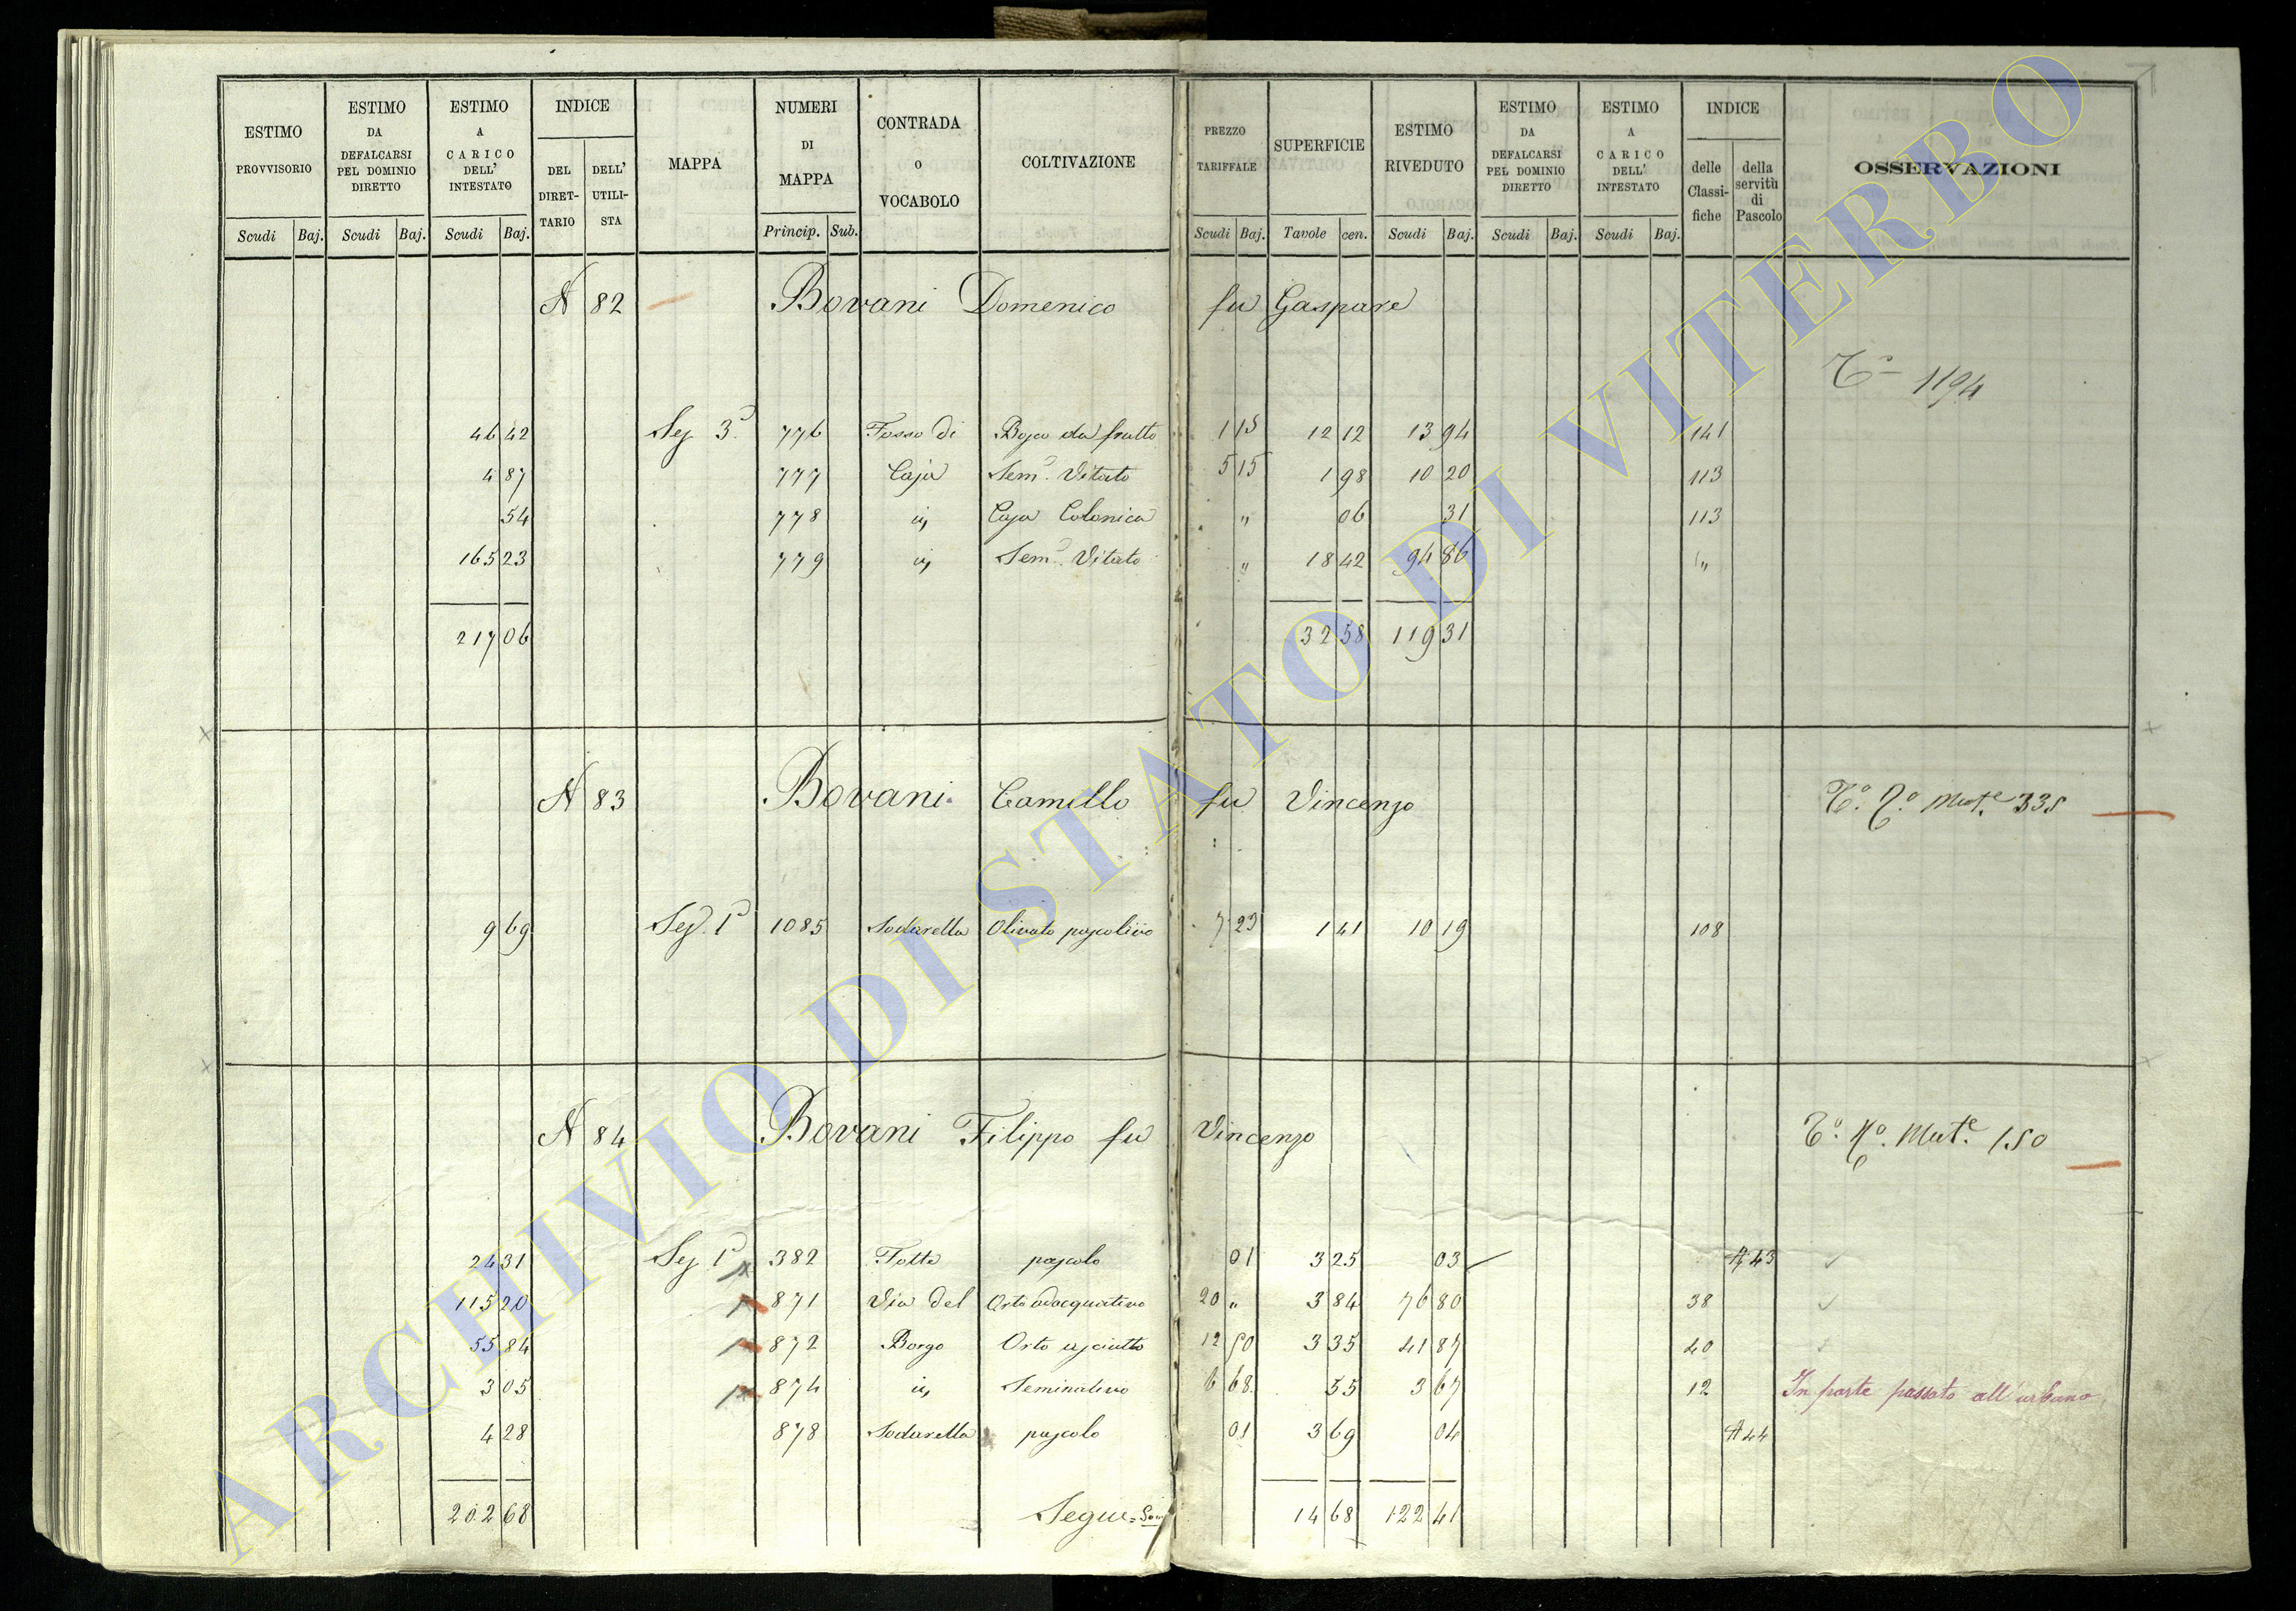 ESTIMO PROVVISORIO | ESTIMO DA DEFALCARSI PEL DOMINIO DIRETTO | ESTIMO A CARICO DELL' INTESTATO | INDICE | MAPPA | NUMERI DI MAPPA | CONTRADA O VOCABOLO | COLTIVAZIONE | PREZZO TARIFFALE | SUPERFICIE | ESTIMO RIVEDUTO | ESTIMO DA DEFALCARSI PEL DOMINIO DIRETTO | ESTIMO A CARICO DELL' INTESTATO | INDICE | OSSERVAZIONI
DEL DIRETTARIO | DELL' UTILISTA | delle Classifiche | della servitù di Pascolo
Scudi | Baj. | Scudi | Baj. | Scudi | Baj. | Princip. | Sub. | Scudi | Baj. | Tavole | cen. | Scudi | Baj. | Scudi | Baj. | Scudi | Baj.
N 82 Bovani Domenico fu Gaspare
1194
46 42 | Sez 3a | 776 | Fosso di | Bosco da frutto | 1 15 | 12 12 | 13 94 | 141
4 87 | 777 | Casa | Semo. Vitato | 5 15 | 1 98 | 10 20 | 113
54 | 778 | id | Casa Colonica | " | 06 | 31 | 113
165 23 | 779 | id | Semo. Vitato | " | 18 42 | 94 86 | "
217 06 | 32 58 | 119 31
N 83 Bovani Camillo fu Vincenzo Mute. 335
9 69 | Sez. 1a | 1085 | Sodarella | Olivato pascolivo | 7 23 | 1 41 | 10 19 | 108
N 84 Bovani Filippo fu Vincenzo Mute. 150
24 31 | Sez 1a | 382 | Totta | pascolo | 01 | 3 25 | 03 | A 43
115 20 | 871 | Via del | Orto adacquativo | 20 " | 3 84 | 76 80 | 38
55 84 | 872 | Borgo | Orto asciutto | 12 50 | 3 35 | 41 87 | 40
3 05 | 874 | id | Seminativo | 6 68 | 55 | 3 67 | 12 | In parte passato all'urbano
4 28 | 878 | Sodarella | pascolo | 01 | 3 69 | 04 | A 44
202 68 | Segue | 14 68 | 122 41
ARCHIVIO DI STATO DI VITERBO